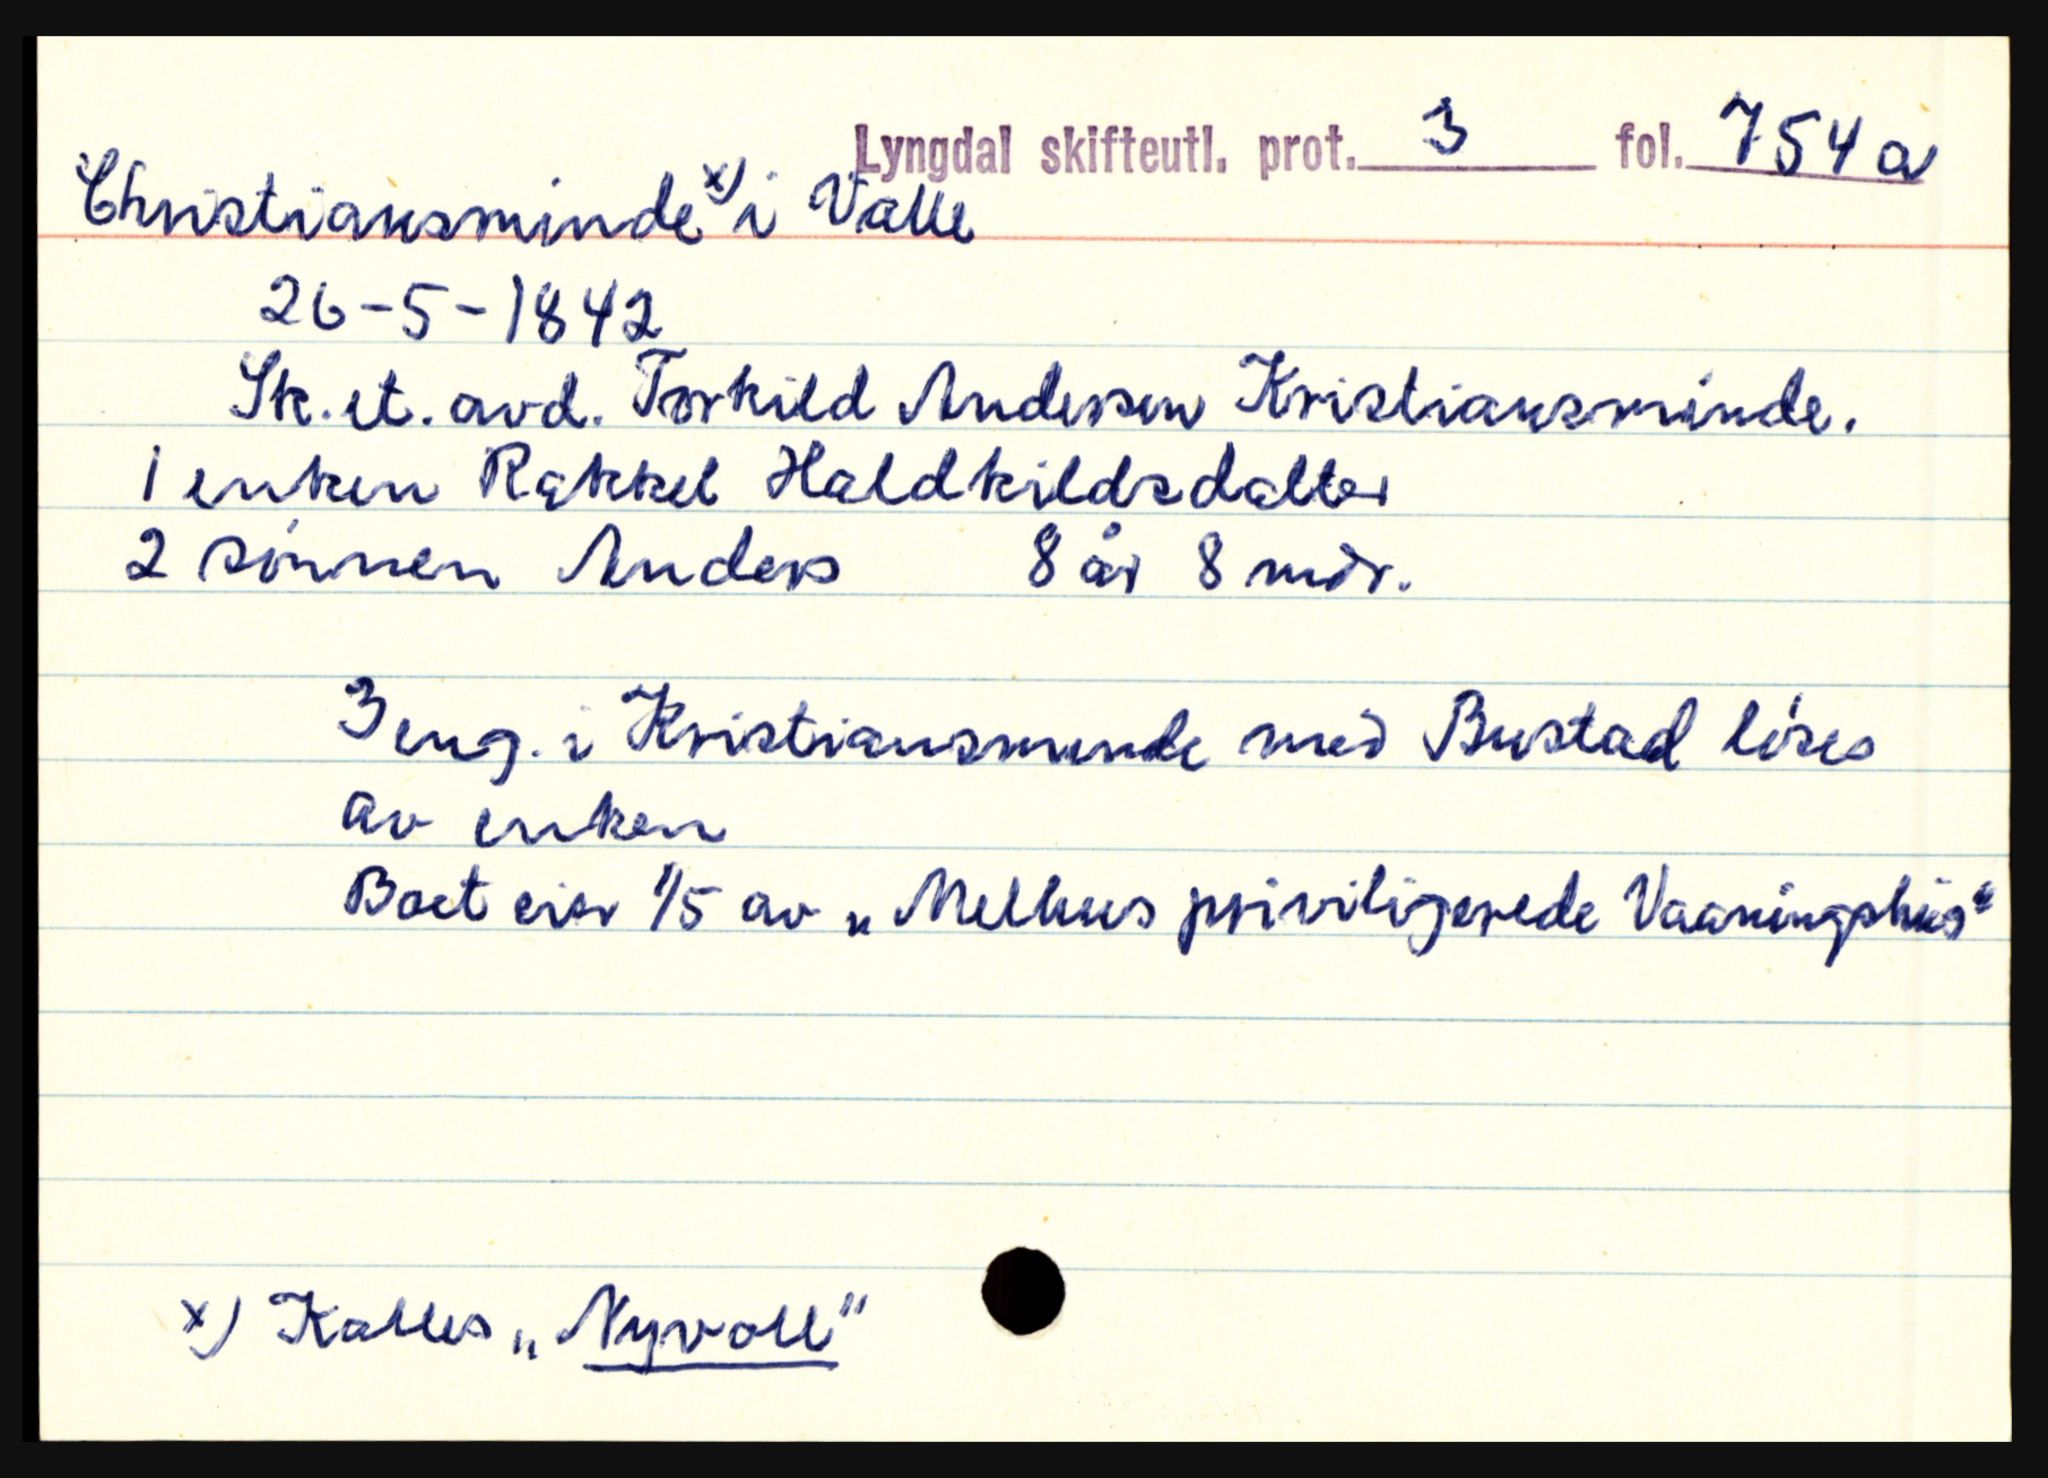 Lyngdal skifteutl. prot. 3 fol. 754a
Christiansminde x) i Valle
26-5-1842
Sk. et. avd. Torkild Andersen Kristiansminde.
1 enken Rakkel Haldkildsdatter
2 sönnen Anders 8 år 8 mdr.
3 eng. i Kristiansminde med Bustad löses
av enken
Boet eier 1/5 av „Melhus priviligerede Vaaningshus"
x) Kalles „Nyvoll"